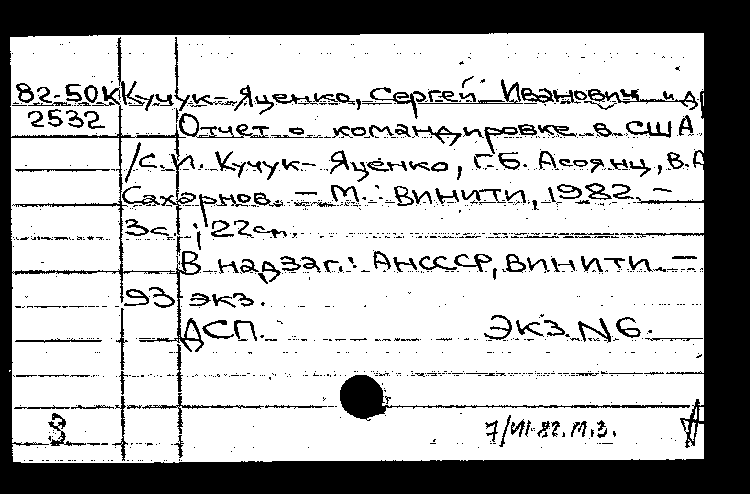 82-50К Кучук-Яценко, Сергей Иванович и др
2532 Отчет о командировке в США
/С.И. Кучук-Яценко, Г.Б. Асоянц, В.А
Сахарнов. – М.: ВИНИТИ, 1982. –
3с ; 22см.
В надзаг.: АНСССР, ВИНИТИ. –
93 экз.
ДСП. ЭКЗ. N6.
7/VI-82. М.З.